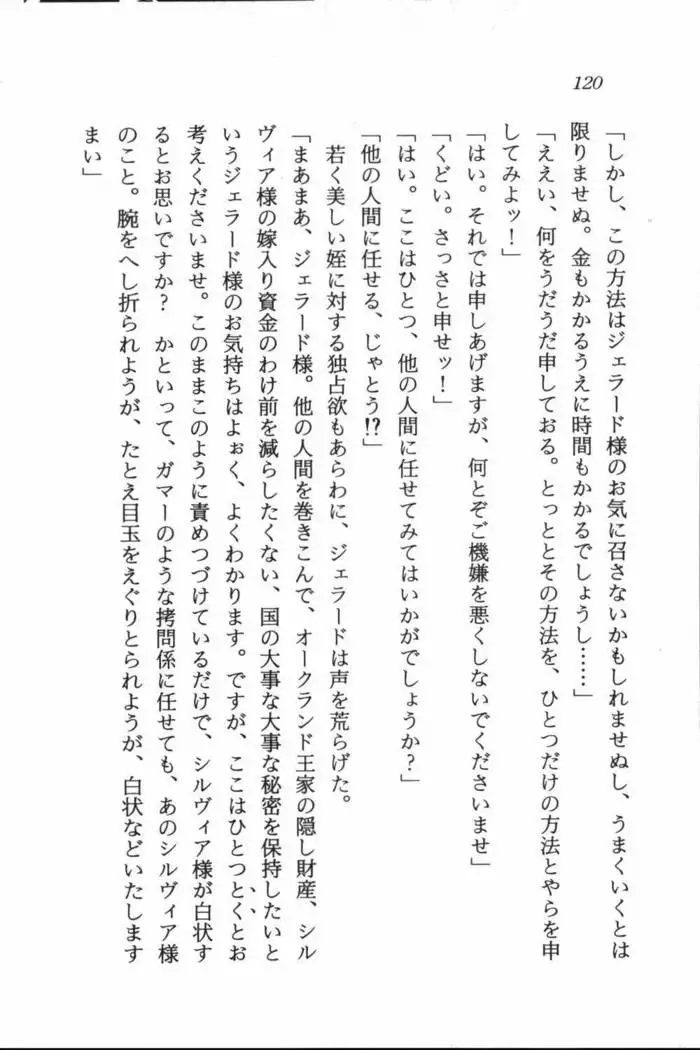 120
「しかし、この方法はジェラード様のお気に召さないかもしれませぬし、うまくいくとは
限りませぬ。金もかかるうえに時間もかかるでしょうし……」
「ええい、何をうだうだ申しておる。とっととその方法を、ひとつだけの方法とやらを申
してみよッ！」
「はい。それでは申しあげますが、何とぞご機嫌を悪くしないでくださいませ」
「くどい。さっさと申せッ！」
「はい。ここはひとつ、他の人間に任せてみてはいかがでしょうか？」
「他の人間に任せる、じゃとう⁉」
若く美しい姪に対する独占欲もあらわに、ジェラードは声を荒らげた。
「まあまあ、ジェラード様。他の人間を巻きこんで、オークランド王家の隠し財産、シル
ヴィア様の嫁入り資金のわけ前を減らしたくない、国の大事な大事な秘密を保持したいと
いうジェラード様のお気持ちはよぉく、よくわかります。ですが、ここはひとつとくとお
考えくださいませ。このままこのように責めつづけているだけで、シルヴィア様が白状す
るとお思いですか？　かといって、ガマーのような拷問係に任せても、あのシルヴィア様
のこと。腕をへし折られようが、たとえ目玉をえぐりとられようが、白状などいたします
まい」